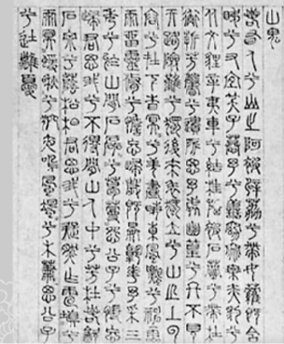 山鬼
若有人兮山之阿被薜荔兮帶女蘿既含
睇兮又宜笑子慕予兮善窈窕乘赤豹兮
從文貍辛夷車兮結桂旗被石蘭兮帶杜
衡折芳馨兮遺所思余處幽篁兮終不見
天路險難兮獨後來表獨立兮山之上雲
容容兮而在下杳冥冥兮羌晝晦東風飄兮神靈
雨留靈脩兮憺忘歸歲既晏兮孰華予采三
秀兮於山間石磊磊兮葛蔓蔓怨公子兮悵忘
歸君思我兮不得閒山中人兮芳杜若飲
石泉兮蔭松柏君思我兮然疑作雷填填兮
雨冥冥猨啾啾兮又夜鳴風颯颯兮木蕭蕭思公子
兮徒離憂